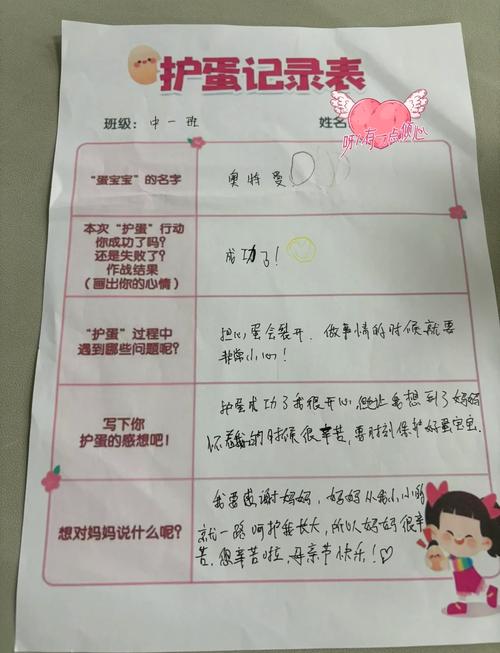 护蛋记录表
班级: 中一班
姓名
呀~有一点偏心
“蛋宝宝”的名字
奥特曼
本次“护蛋”行动
你成功了吗?
还是失败了?
作战结果
(画出你的心情)
成功了!
“护蛋”过程中
遇到哪些问题呢?
担心蛋会裂开. 做事情的时候就要
非常小心!
写下你
护蛋的感想吧!
护蛋成功了我很开心,也让我想到了妈妈
怀着我的时候很辛苦,要时刻保护好蛋宝宝.
想对妈妈说什么呢?
我要感谢妈妈,妈妈从我小小的
就一路呵护我长大,所以妈妈很辛
苦.您辛苦啦,母亲节快乐!